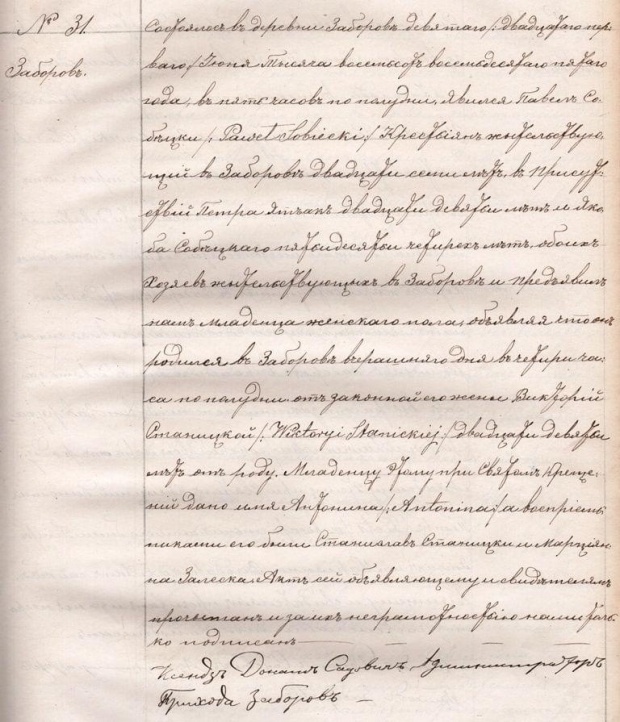 № 31.
Заборовъ.
Состоялось въ деревни Заборовъ девятаго /: двадцатаго пер-
ваго :/ Іюня тысяча восемьсотъ восемьдесятаго пятаго
года, въ пять часовъ по полудни, явился Павелъ Со-
бѣцки /: Paweł Sobiecki :/ Крестіянъ жительствую-
щий въ Заборовѣ двадцати семи лѣтъ, въ присут-
ствій Петра Ятчакъ двадцати девяти лѣтъ и Яко-
ба Собѣцкаго пятидесяти четирехъ лѣтъ, обоихъ
Хозяевъ жительствующихъ въ Заборовѣ и предъявилъ
намъ младенца женскаго пола, объявляя что онъ
родился въ Заборовѣ вчерашняго дня въ четири ча-
са по полудни отъ законной его жены Викторій
Станицкой /: Wiktoryi Stanickiej :/ двадцати девяти
лѣтъ отъ роду. Младенцу этому при Святомъ Креще-
ній дано имя Антонина /: Antonina :/ а воспріем-
никами его были Станиславъ Станицки и Марціян-
на Залеска. Актъ сей объявляющему и свидѣтелямъ
прочытанъ и за ихъ неграмотностью нами толь-
ко подписанъ
Ксендзъ Донатъ Садовичъ Администраторъ
Прихода Заборовъ